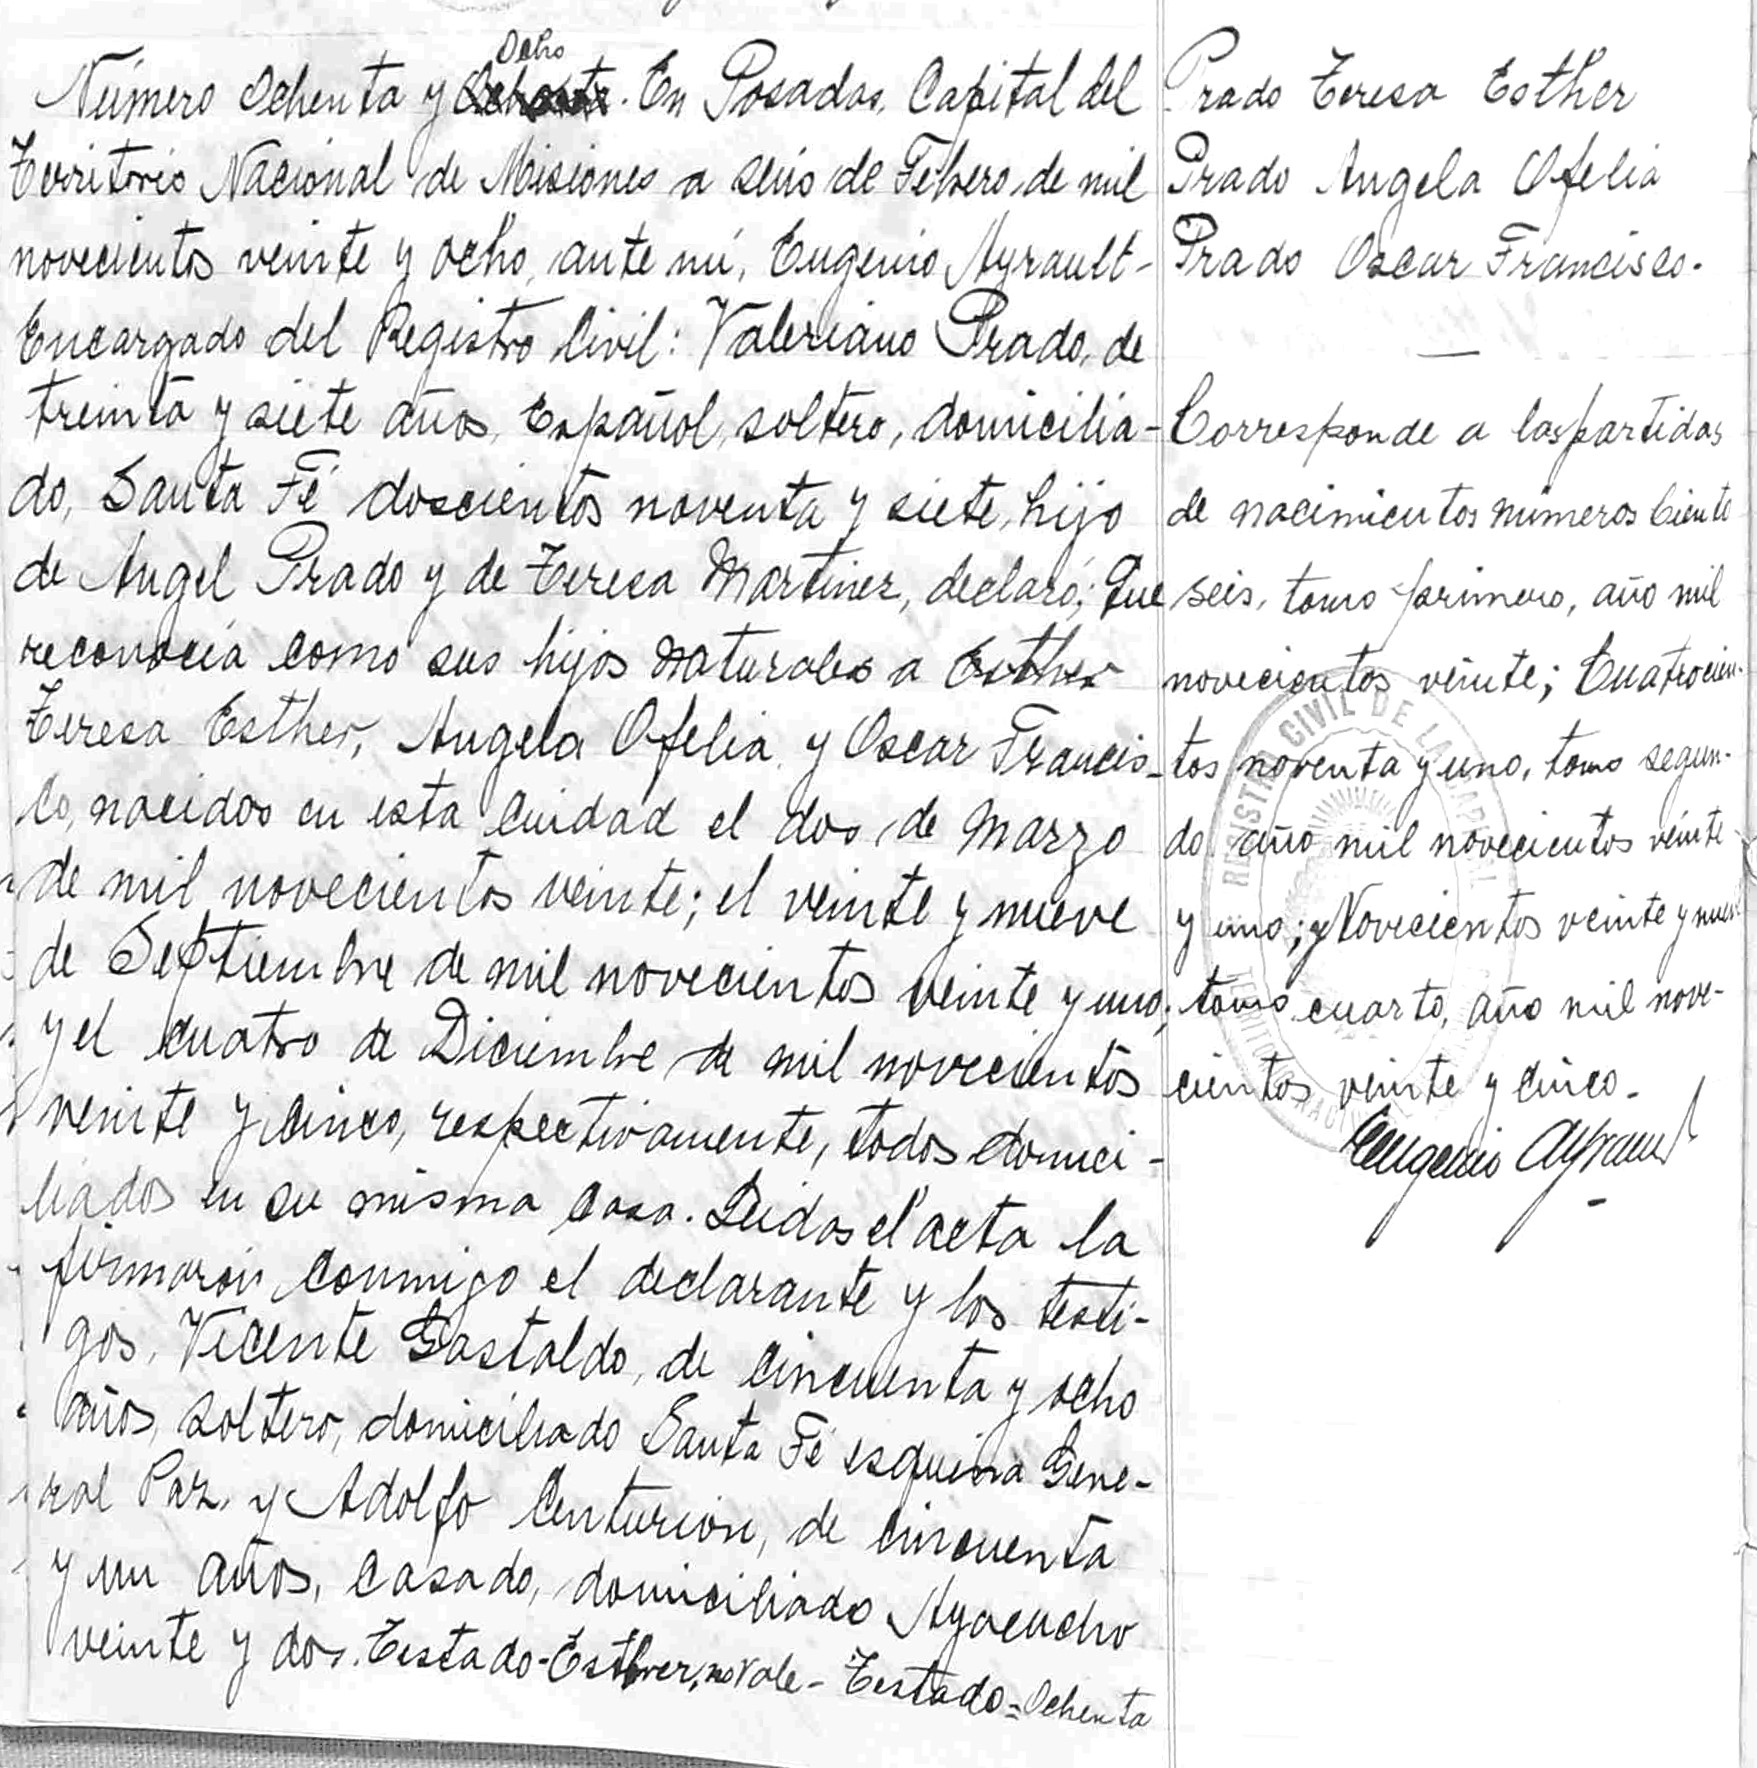 Ocho
Número Ochenta y Ochenta. En Posadas, Capital del
Territorio Nacional de Misiones a seis de Febrero de mil
novecientos veinte y ocho, ante mí, Eugenio Ayrault-
Encargado del Registro Civil: Valeriano Prado, de
treinta y siete años, Español, soltero, domicilia-
do, Santa Fé doscientos noventa y siete, hijo
de Angel Prado y de Teresa Martinez, declaró; Que
reconocía como sus hijos naturales a Esther
Teresa Esther, Angela Ofelia y Oscar Francis-
co, nacidos en esta Ciudad el dos de Marzo
de mil novecientos veinte; el veinte y nueve
de Septiembre de mil novecientos veinte y uno;
y el cuatro de Diciembre de mil novecientos
veinte y cinco, respectivamente, todos domici-
liados en su misma casa. Leidas el acta la
firmaron conmigo el declarante y los testi-
gos, Vicente Gastaldo, de cincuenta y ocho
años, soltero, domiciliado Santa Fé esquina Gene-
ral Paz, y Adolfo Centurion, de cincuenta
y un años, casado, domiciliado Ayacucho
veinte y dos. Testado-Esther, no vale- Testado=Ochenta
Prado Teresa Esther
Prado Angela Ofelia
Prado Oscar Francisco.
Corresponde a las partidas
de nacimientos números Ciento
seis, tomo primero, año mil
novecientos veinte; Cuatrocien-
tos noventa y uno, tomo segun-
do año mil novecientos veinte
y uno; y Novecientos veinte y nueve
tomo cuarto, año mil nove-
cientos veinte y cinco.
Eugenio Ayrault
REGISTRO CIVIL DE LA CAPITAL